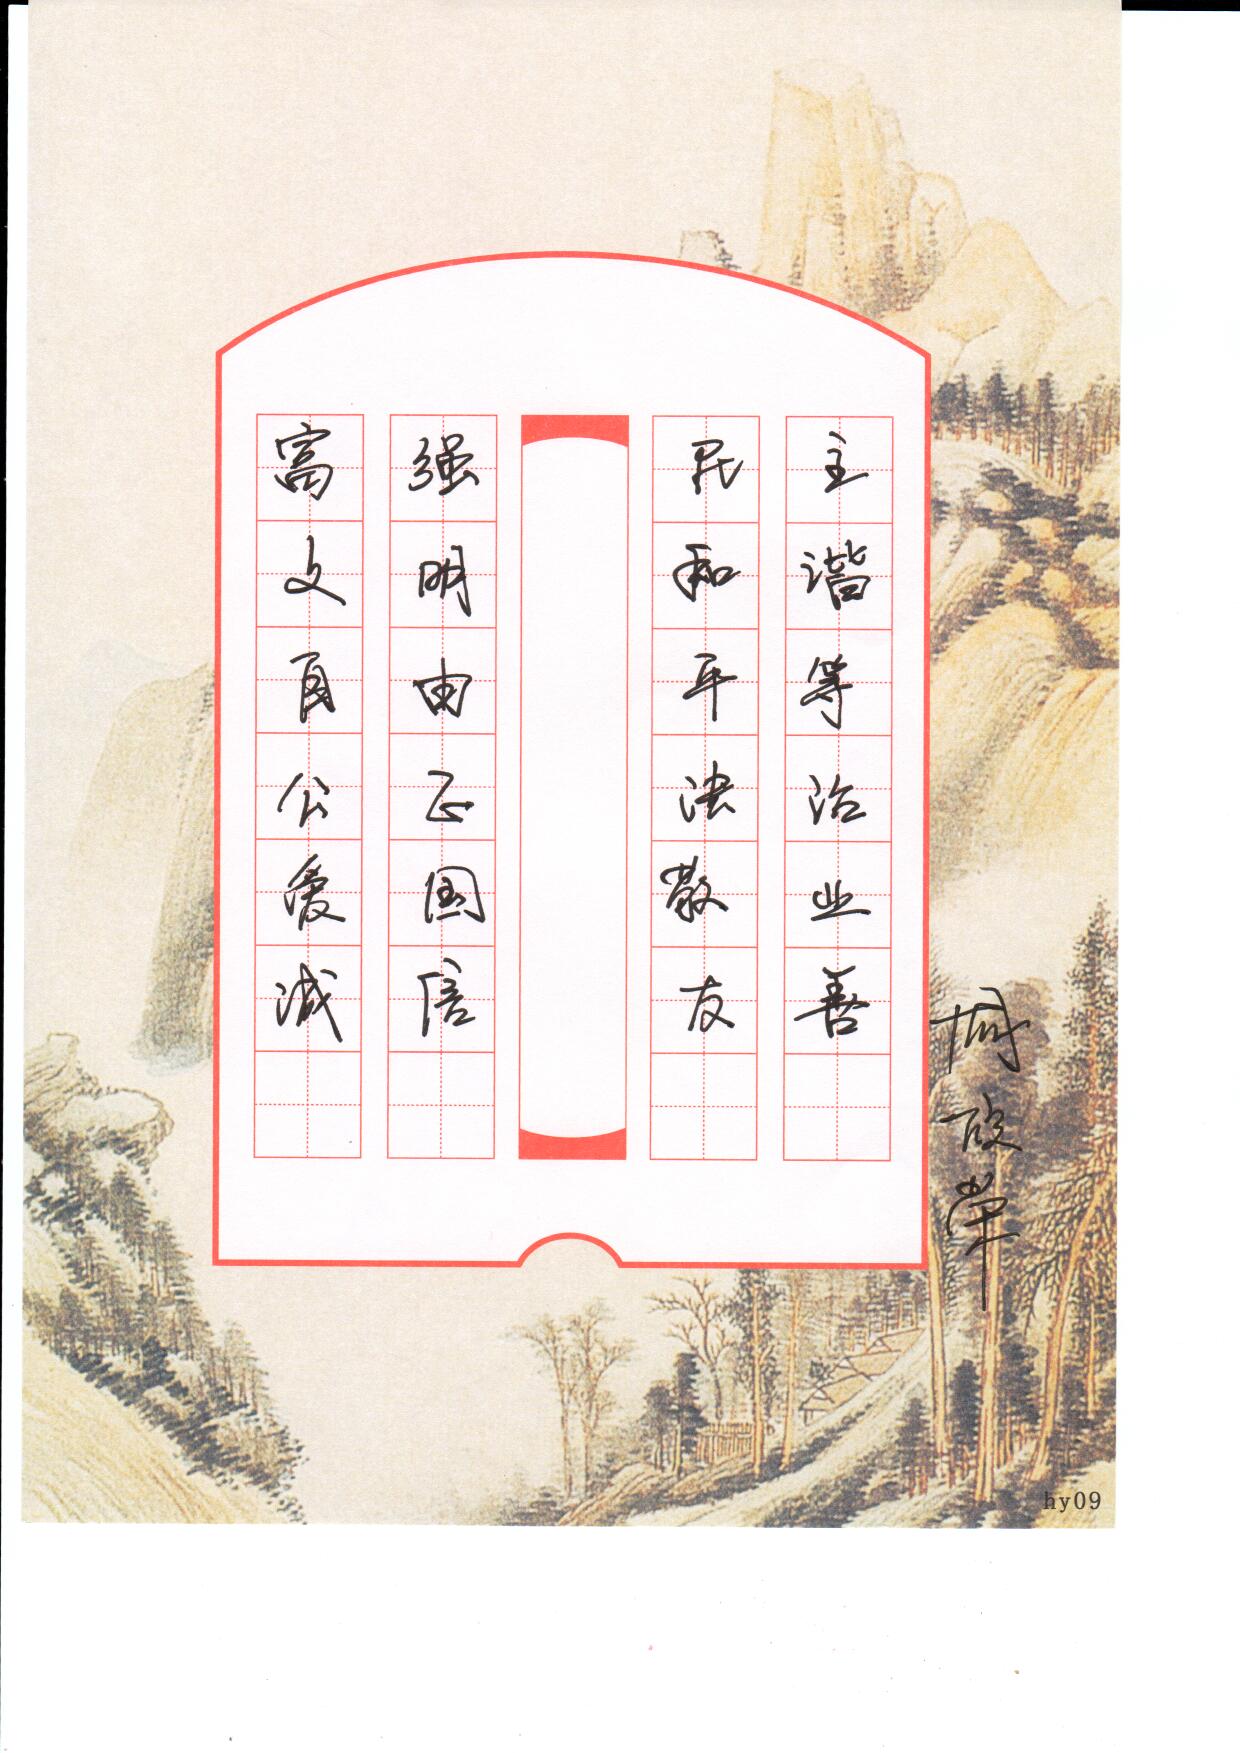 富强民主
文明和谐
自由平等
公正法治
爱国敬业
诚信友善
hy09